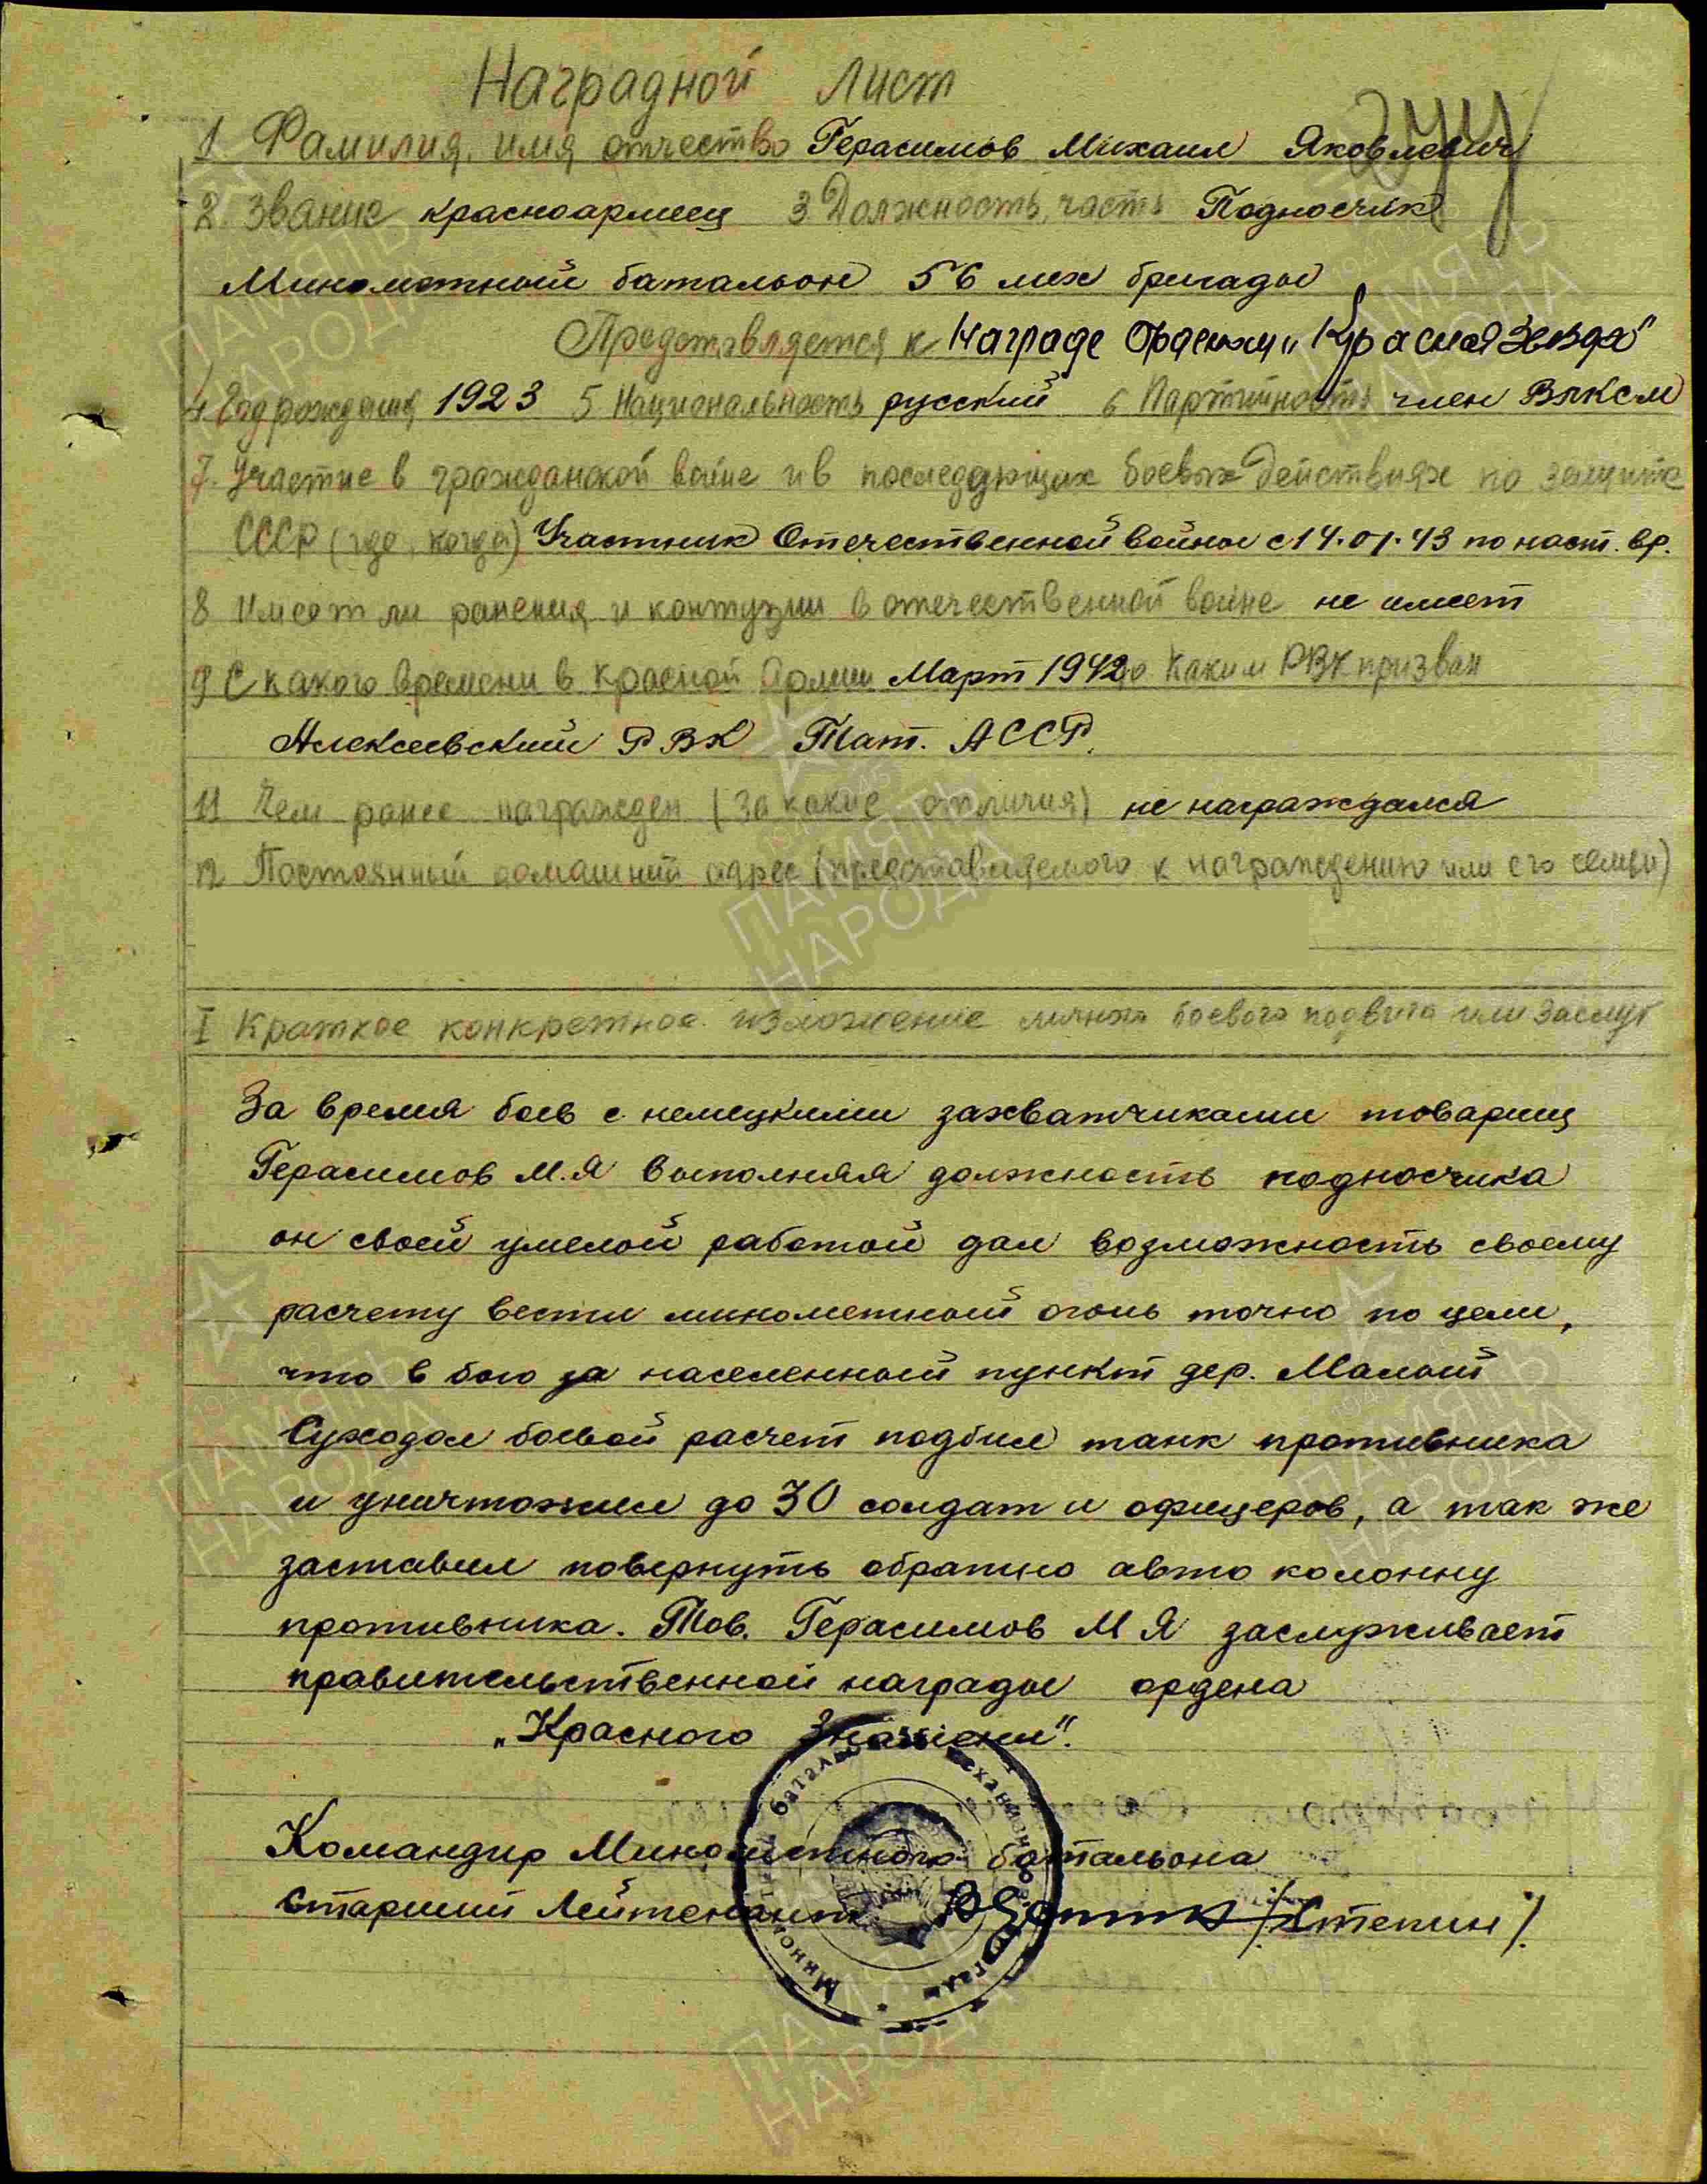 Наградной лист
1 Фамилия, имя отчество Герасимов Михаил Яковлевич
2. Звание красноармеец 3 Должность, часть Подносчик
Минометный батальон 56 мех бригады
Представляется к Награде Орденом „Красная Звезда"
4 Год рождения 1923 5 Национальность русский 6 Партийность член ВЛКСМ
7. Участие в гражданской войне и в последующих боевых действиях по защите
СССР (где, когда) Участник Отечественной войны с 14.01.43 по наст. вр.
8 Имеет ли ранения и контузии в отечественной войне не имеет
9 С какого времени в Красной Армии Март 1942 10 Каким РВК призван
Алексеевский РВК Тат. АССР.
11 Чем ранее награжден (за какие отличия) не награждался
12 Постоянный домашний адрес (представляемого к награждению или его семьи)
I Краткое конкретное изложение личного боевого подвига или заслуг
За время боев с немецкими захватчиками товарищ
Герасимов М.Я выполняя должность подносчика
он своей умелой работой дал возможность своему
расчету вести минометный огонь точно по цели,
что в бою за населенный пункт дер. Малый
Суходол боевой расчет подбил танк противника
и уничтожил до 30 солдат и офицеров, а так же
заставил повернуть обратно авто колонну
противника. Тов. Герасимов М Я заслуживает
правительственной награды ордена
„Красного Знамени".
Командир Минометного батальона
Старший Лейтенант /Степин/
ПАМЯТЬ
НАРОДА